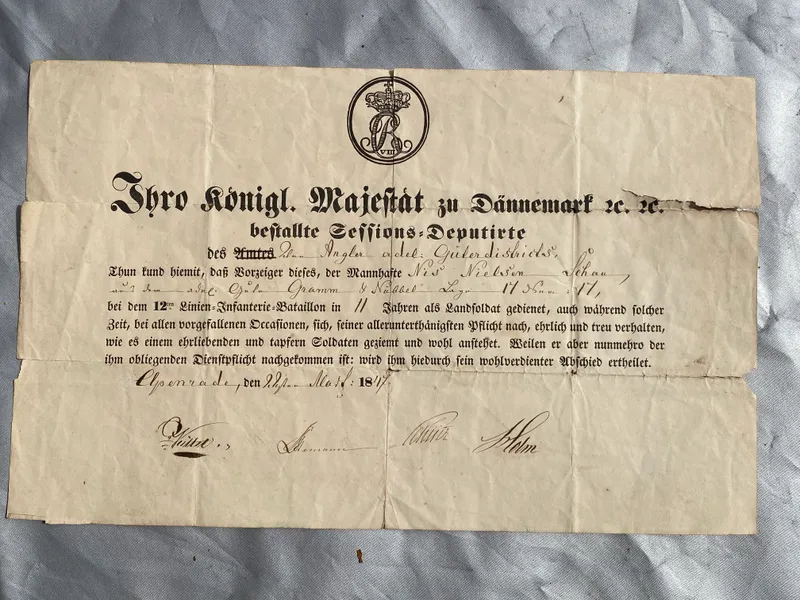 CR
VIII
Ihro Königl. Majestät zu Dännemark ꝛc. ꝛc.
bestallte Sessions-Deputirte
des Amtes 2ten Angler adel: Güterdistricts,
Thun kund hiemit, daß Vorzeiger dieses, der Mannhafte Nis Nielsen Schau,
aus dem adel: Gute Gramm & Nübbel 17 17,
bei dem 12ten Linien-Infanterie-Bataillon in 11 Jahren als Landsoldat gedienet, auch während solcher
Zeit, bei allen vorgefallenen Occasionen, sich, seiner allerunterthänigsten Pflicht nach, ehrlich und treu verhalten,
wie es einem ehrliebenden und tapfern Soldaten geziemt und wohl anstehet. Weilen er aber nunmehro der
ihm obliegenden Dienstpflicht nachgekommen ist: wird ihm hiedurch sein wohlverdienter Abschied ertheilet.
Apenrade, den 22ten 1847.
Holm